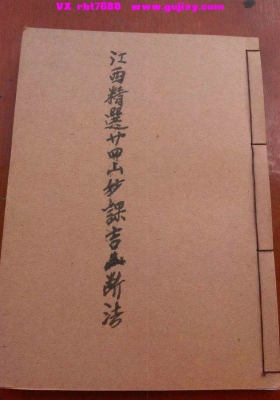 VX rbt7888  www.gujisy.com
江西精選廿四山妙課吉凶斷法